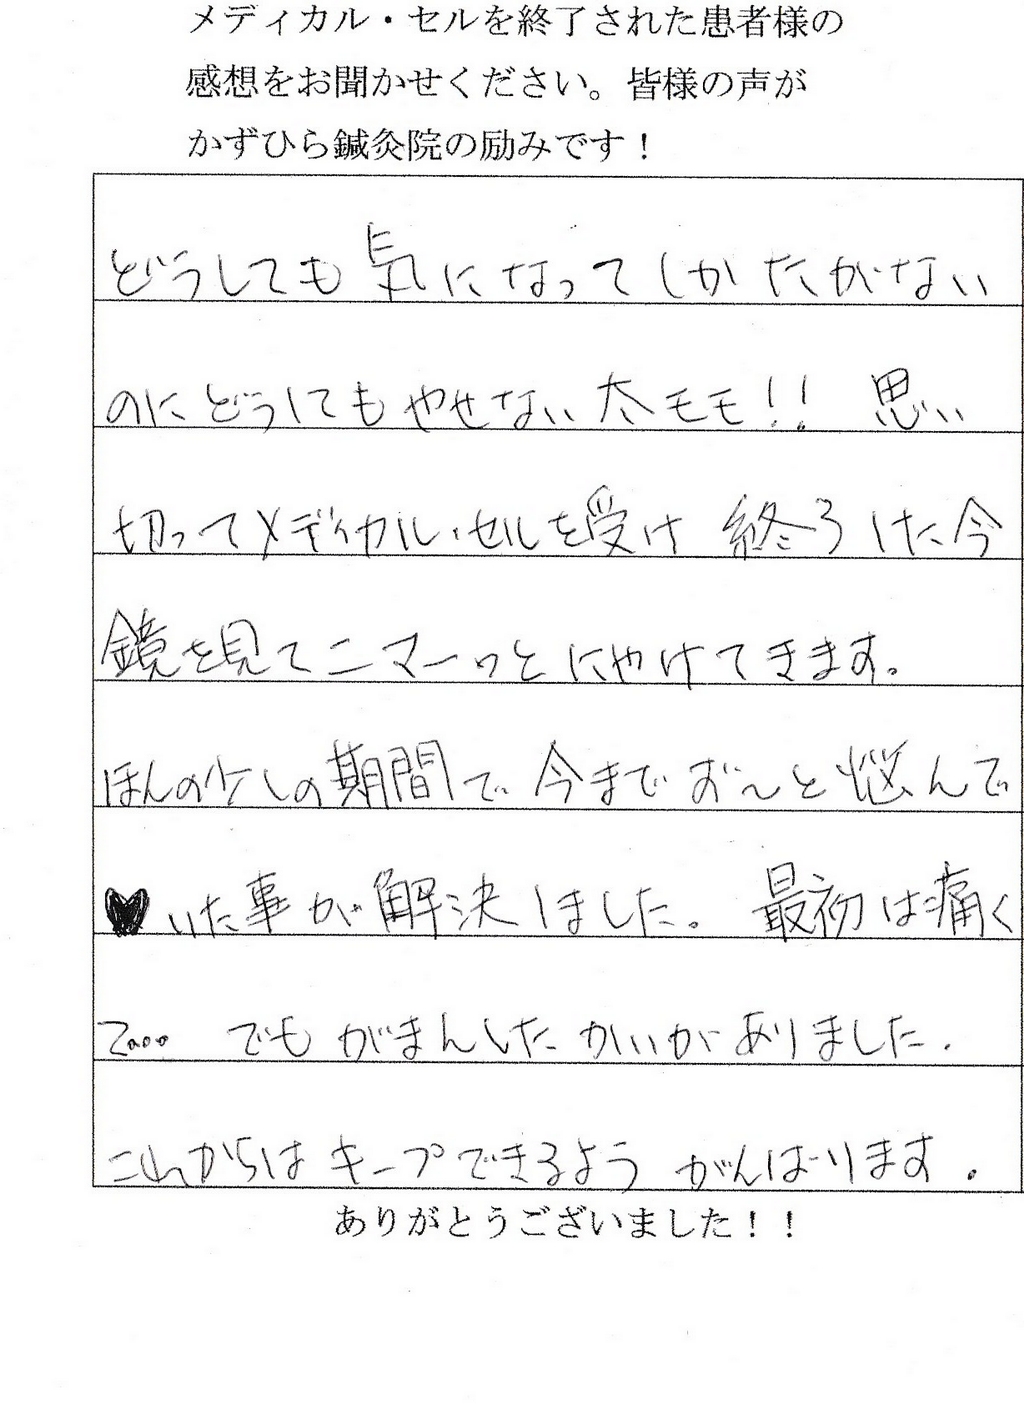 メディカル・セルを終了された患者様の
感想をお聞かせください。皆様の声が
かずひら鍼灸院の励みです！
どうしても気になってしかたがない
のにどうしてもやせない太モモ!! 思い
切ってメディカル・セルを受け 終ろした今
鏡を見てニマーッとにやけてきます。
ほんの少しの期間で今までお〜と悩んで
♥いた事が解決しました。最初は痛く
て... でもがまんしたかいがありました.
これからはキープできるようがんばります.
ありがとうございました！！